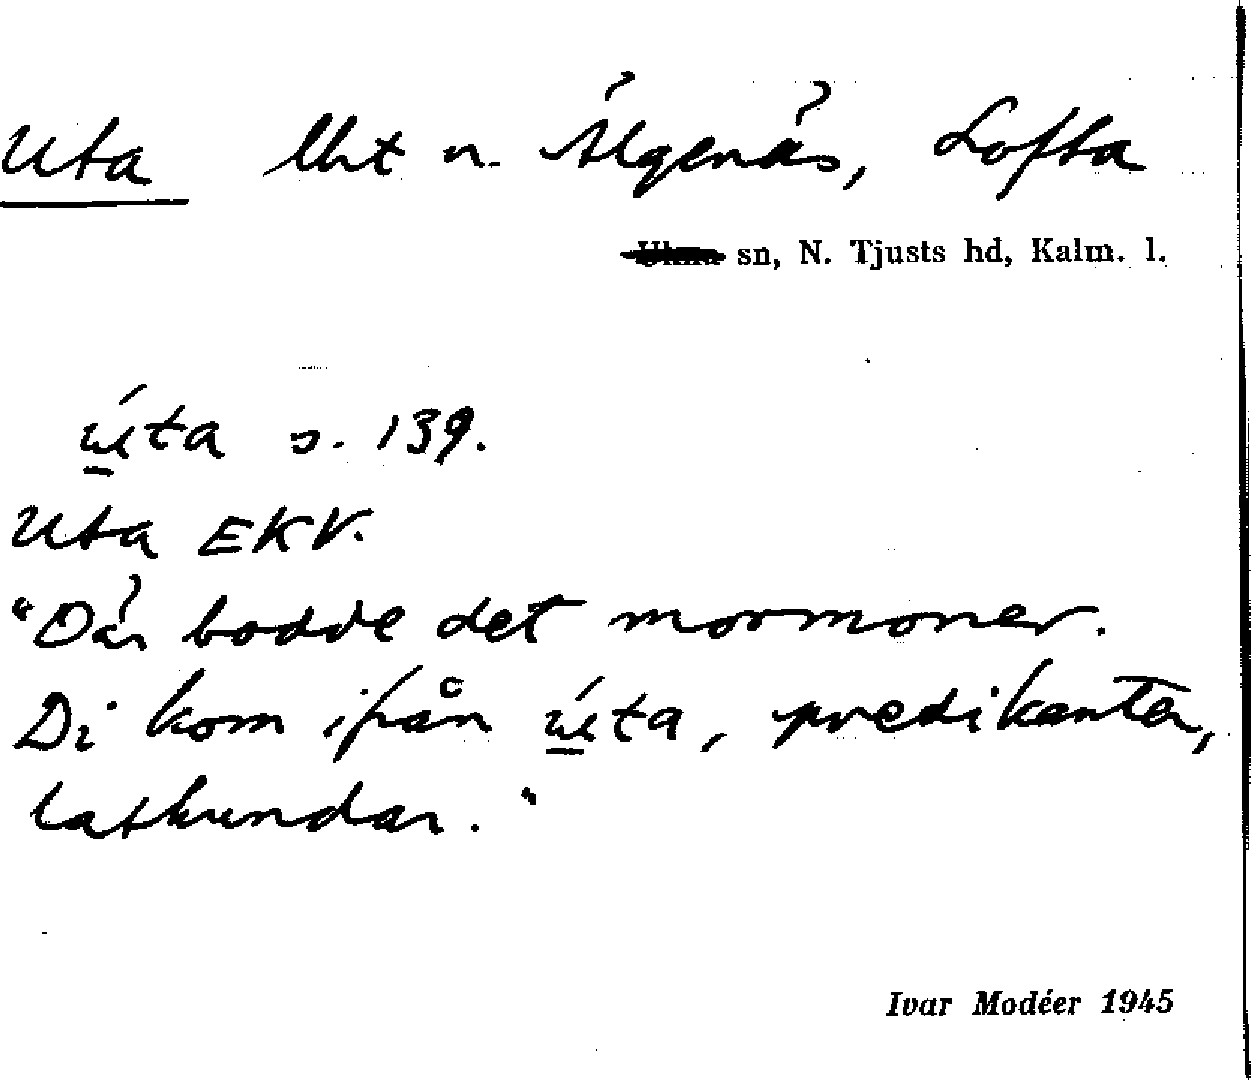 Uta lht u. Älgenäs, Lofta
sn, N. Tjusts hd, Kalm. l.
úta s. 139.
Uta EKV.
"Där bodde det mormoner.
Di kom ifrån úta, predikanter,
lathundar."
Ivar Modéer 1945